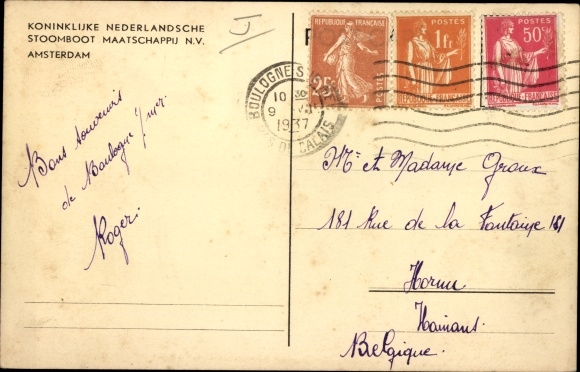 KONINKLIJKE NEDERLANDSCHE
STOOMBOOT MAATSCHAPPIJ N.V.
AMSTERDAM
REPUBLIQUE FRANÇAISE
POSTES
1fr
REPUBLIQUE FRANÇAISE
POSTES
50c
BOULOGNE S
10 30
9
1937
PAS DE CALAIS
Bons souvenirs
de Boulogne s/mer.
Roger.
Mr et Madame Groux
181 Rue de la Fontaine 181
Hornu
Hainaut.
Belgique.